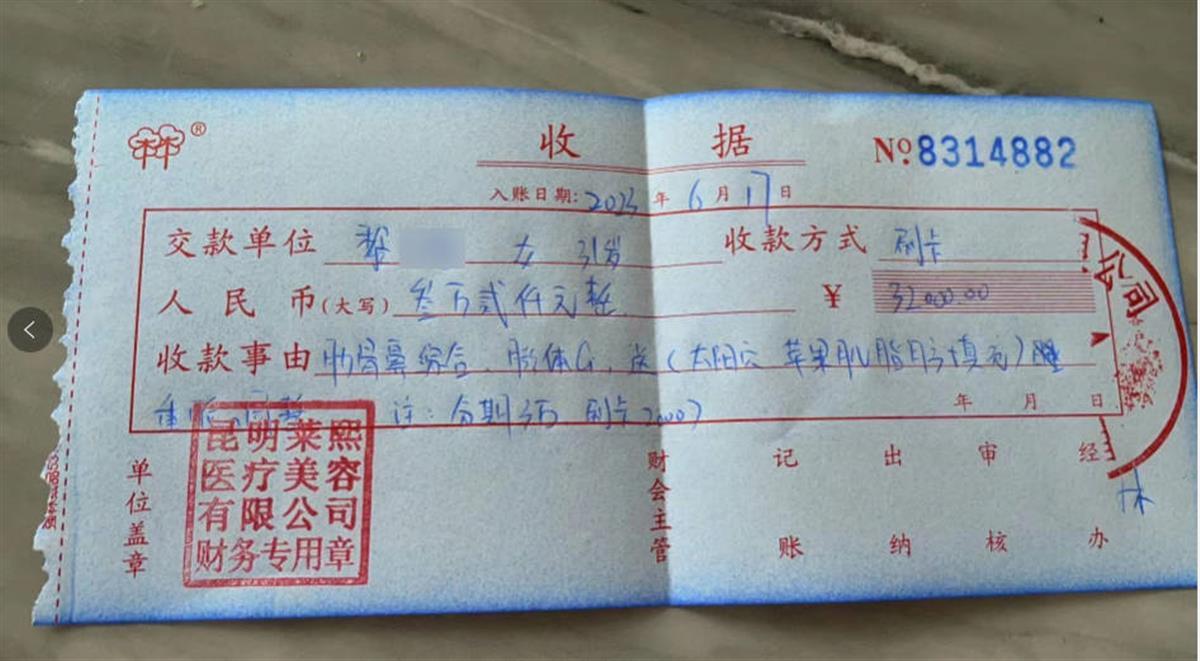 收 据 № 8314882
入账日期: 2023 年 6 月 17 日
交款单位 女 31岁 收款方式 刷卡
人民币(大写) 叁万贰仟元整 ¥ 32000.00
收款事由 肋骨鼻综合、膨体G、送(太阳穴 苹果肌脂肪填充)
注: 分期3万 刷卡2000)
年 月 日
昆明莱熙
医疗美容
有限公司
财务专用章
单位盖章
财会主管
记账
出纳
审核
经办
林